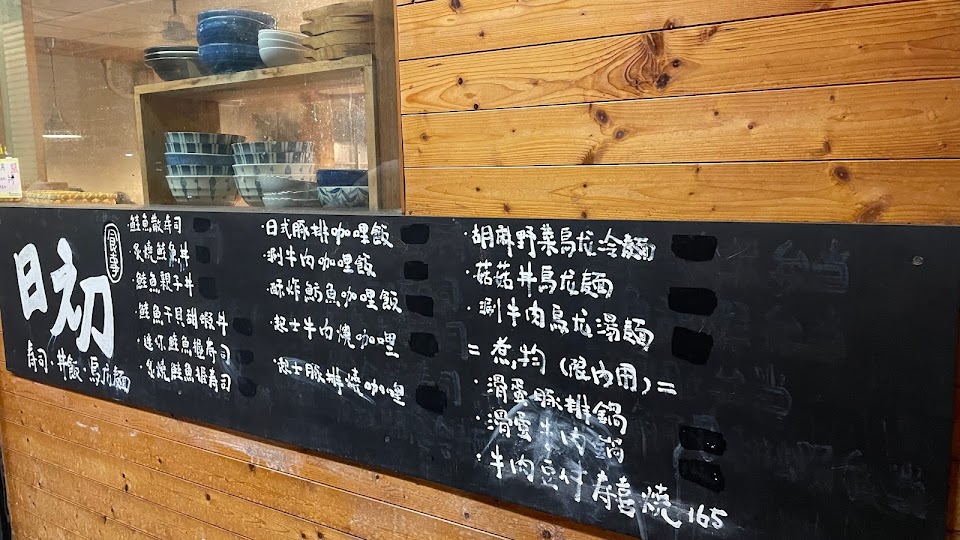 日初
食事
寿司·丼飯·烏龙麵
·鮭魚散寿司
·炙燒鮭魚丼
·鮭魚親子丼
·鮭魚干貝甜蝦丼
·迷你鮭魚握寿司
·炙燒鮭魚握寿司
·日式豚排咖哩飯
·涮牛肉咖哩飯
·酥炸魴魚咖哩飯
·起士牛肉燒咖哩
·起士豚排燒咖哩
·胡麻野菜烏龙冷麵
·菇菇丼烏龙麵
·涮牛肉烏龙湯麵
=煮物(限內用)=
·滑蛋豚排鍋
·滑蛋牛肉鍋
·牛肉豆付寿喜燒 165